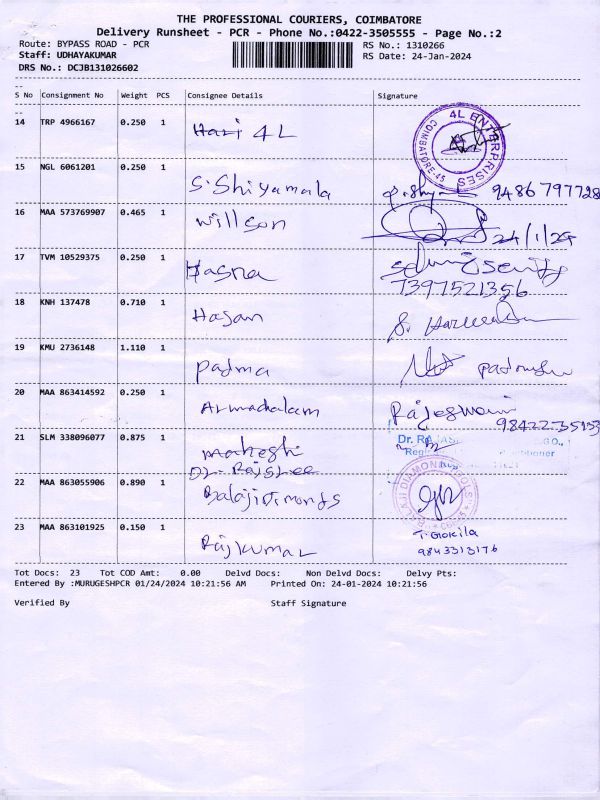 THE PROFESSIONAL COURIERS, COIMBATORE
Delivery Runsheet - PCR - Phone No.:0422-3505555 - Page No.:2
Route: BYPASS ROAD - PCR RS No.: 1310266
Staff: UDHAYAKUMAR RS Date: 24-Jan-2024
DRS No.: DCJB131026602
S No Consignment No Weight PCS Consignee Details Signature
14 TRP 4966167 0.250 1 Hari 4L
4L ENTERPRISES
COIMBATORE-45
15 NGL 6061201 0.250 1 S. Shiyamala 9486797728
16 MAA 573769907 0.465 1 Willson 24/1/24
17 TVM 10529375 0.250 1 Hasna
7397521356
18 KNH 137478 0.710 1 Hasan
19 KMU 2736148 1.110 1 Padma
20 MAA 863414592 0.250 1 Rajeswari
21 SLM 338096077 0.875 1 Mahesh
Dr. Rajshree
22 MAA 863055906 0.890 1 Balaji Dimonds
BALAJI DIAMOND TOOLS
23 MAA 863101925 0.150 1 Rajkumar T. Gokila
9843313176
Tot Docs: 23 Tot COD Amt: 0.00 Delvd Docs: Non Delvd Docs: Delvy Pts:
Entered By :MURUGESHPCR 01/24/2024 10:21:56 AM Printed On: 24-01-2024 10:21:56
Verified By Staff Signature